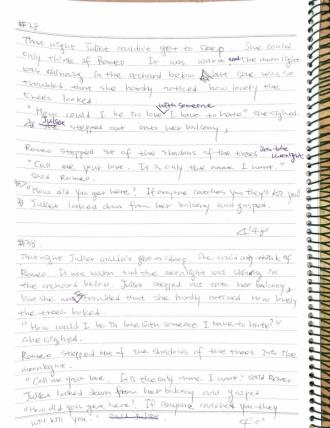 #37
That night Juliet couldn't get to sleep. She could
only think of Romeo. It was warm and the moonlight
was shining in the orchard below but she was so
troubled that she hardy noticed how lovely the
trees looked
with someone
"How could I be in love I have to hate" she sighed.
Juliet stepped out onto her balcony,
Romeo stepped out of the shadows of the trees into the
moonlight
"Call me your love. It is only the name I want."
said Romeo.
"How did you get here? If anyone catches you they'll kill you"
Juliet looked down from her balcony and gasped.
4'48"
#38.
That night Juliet couldn't get to sleep. She could only think of
Romeo. It was warm and the moonlight was shining in
the orchard below. Juliet stepped out onto her balcony,
but she was troubled that she hardy noticed how lovely
the trees looked.
"How could I be in love with someone I have to hate?"
she sighed.
Romeo stepped out of the shadows of the trees into the
"Call me your love. It is the only name I want," said Romeo
Juliet looked down from her balcony and gasped
"How did you get here? If anyone catches you they
will kill you."